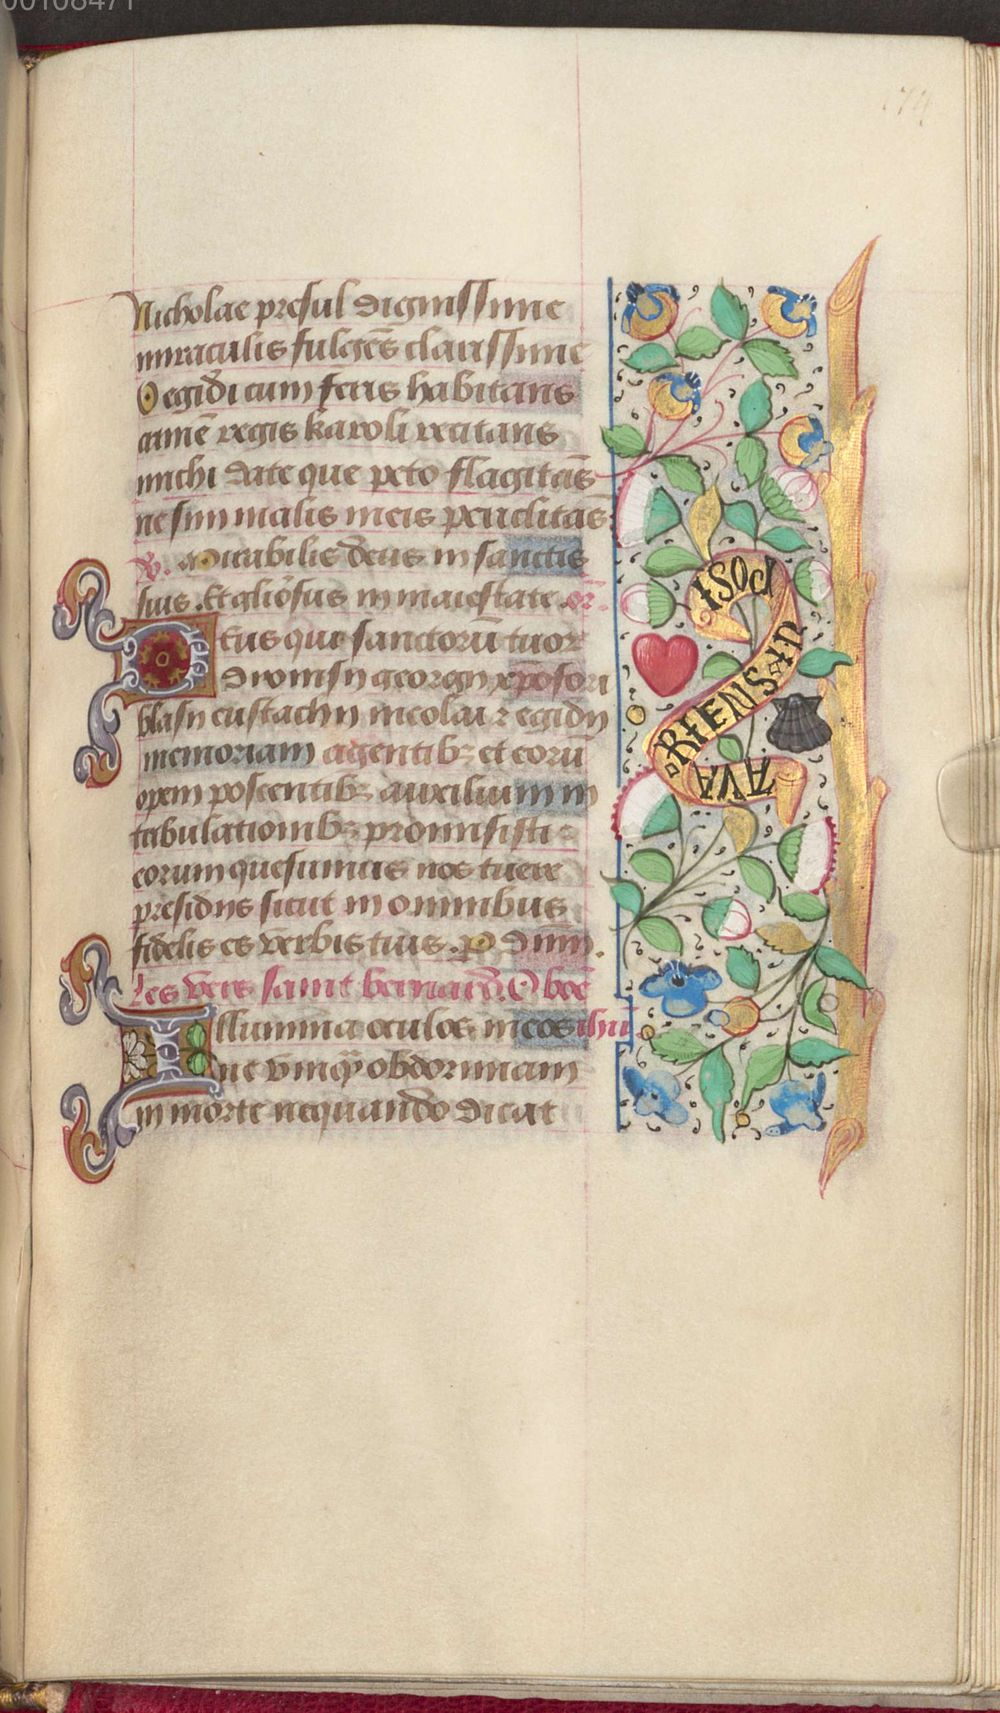 00108471
174
Nicholae presul dignissime
miraculis fulgēs clarissime
O egidi cum feris habitans
crimē regis karoli recitans
michi date que peto flagitās
ne sim malis meis periclitās
℣. Mirabilis deus in sanctis
suis. Et gl̄iosus in maiestate. or̄.
Deus qui sanctorū tuor
dionisij georgij xp̄ofori
blasij eustachij nicolai ꝛ egidij
memoriam agentibꝫ et eorū
opem poscentibꝫ auxilium in
tribulationibꝫ promisisti
eorum quesumus nos tuere
presidijs sicut in omnibus
fidelis es verbis tuis. P dūm.
Les vers saint bernard. O bōe
Illumina oculos meos ihū
ne vnqꝫ obdormiam
in morte nequando dicat
POST
TENEBRAS